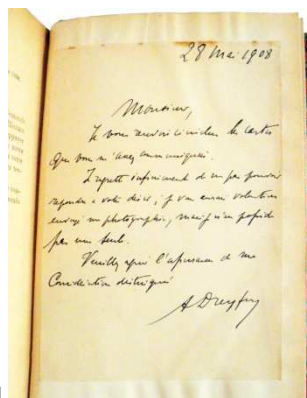 28 Mai 1908
Monsieur,
Je vous renvoie ci inclus les cartes
que vous m'avez communiquées.
Je regrette infiniment de ne pas pouvoir
répondre à votre désir, je vous aurais volontiers
envoyé ma photographie, mais je n'en possède
pas une seule.
Veuillez agréer l'expression de ma
Considération distinguée
A Dreyfus